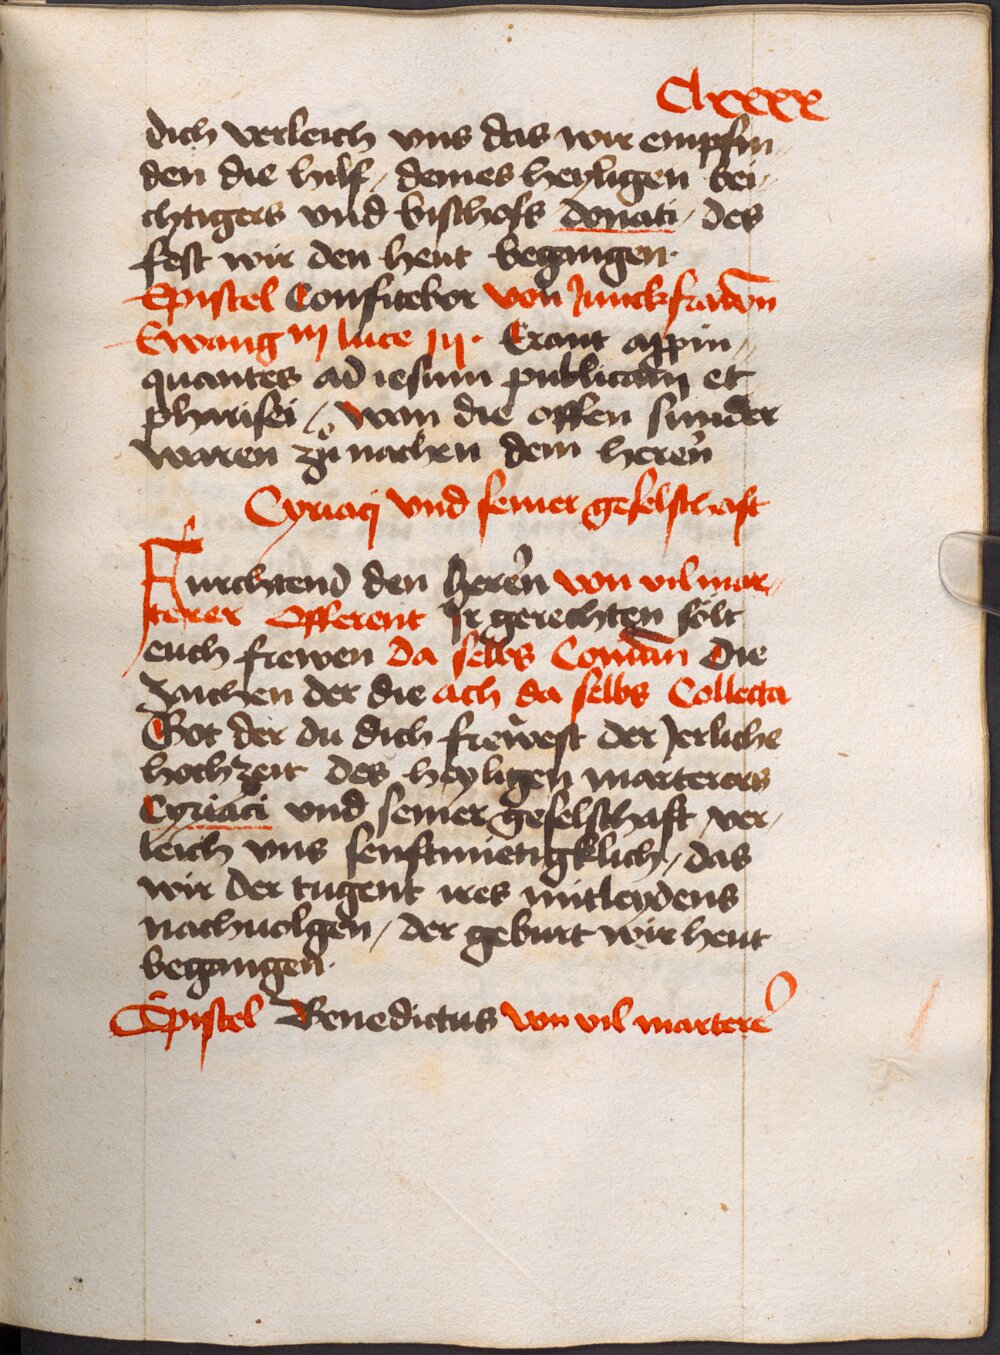 Clxxxx
dich verleich vns das wir empfin„
den die hilf / deines heyligen bei„
chtigers vnd bischofs donati / des
fest wir den heut begingen.
Epistel Confitebor von Junckfrawen
Ewang m luce iij. Erant appin„
quantes ad iesum publicani et
pharisei / wan die offen sunder
waren zů nachen dem herēn
Cyriacj vnd seiner geselschaft
Furchtend den herēn von vil mar„
terer Offerent Ir gerechten sölt
euch frewen da selbs Comūn Die
zaichen der die ach da selbs Collecta
Got der du dich frewest der Jerliche
hochzeit des heyligen marterers
Cyriaci vnd seiner geselschaft / ver„
leich vns senftmietigklich / das
wir der tugent ires mitleydens
nachuolgen / der geburt wir heut
begangen.
Epistel Benedictus von vil martere